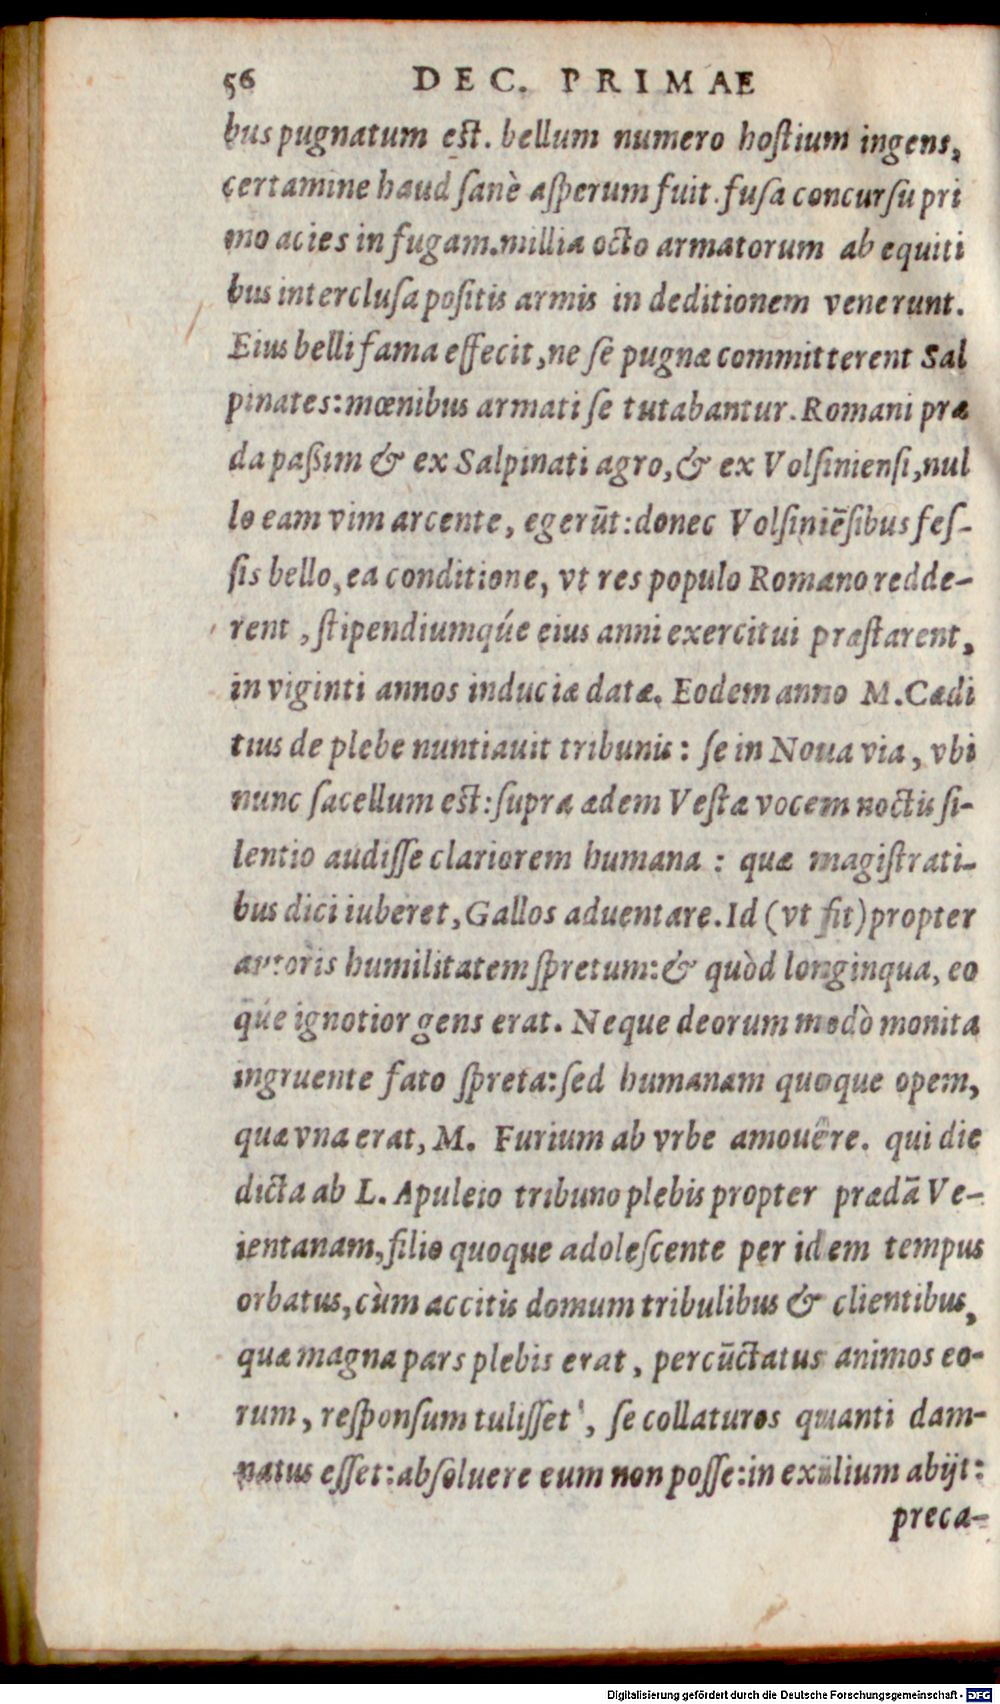 56 DEC. PRIMAE
bus pugnatum est. bellum numero hoſtium ingens,
certamine haud ſanè aſperum fuit. fuſa concurſu pri
mo acies in fugam. millia octo armatorum ab equiti
bus intercluſa poſitis armis in deditionem venerunt.
Eius belli fama effecit, ne ſe pugnæ committerent Sal
pinates: mœnibus armati ſe tutabantur. Romani præ
da paßim & ex Salpinati agro, & ex Volſinienſi, nul
lo eam vim arcente, egerūt: donec Volſiniēſibus feſ-
ſis bello, ea conditione, vt res populo Romano redde-
rent, ſtipendiumqúe eius anni exercitui præſtarent,
in viginti annos induciæ datæ. Eodem anno M. Cædi
tius de plebe nuntiauit tribunis: ſe in Noua via, vbi
nunc ſacellum est: ſupra ædem Veſtæ vocem noctis ſi-
lentio audiſſe clariorem humana: quæ magiſtrati-
bus dici iuberet, Gallos aduentare. Id (vt fit) propter
autoris humilitatem ſpretum: & quòd longinqua, eo
qúe ignotior gens erat. Neque deorum modò monita
ingruente fato ſpreta: ſed humanam quoque opem,
quæ vna erat, M. Furium ab vrbe amouêre. qui die
dicta ab L. Apuleio tribuno plebis propter prædā Ve-
ientanam, filio quoque adoleſcente per idem tempus
orbatus, cùm accitis domum tribulibus & clientibus,
quæ magna pars plebis erat, percūctatus animos eo-
rum, reſponſum tuliſſet, ſe collaturos quanti dam-
natus eſſet: abſoluere eum non poſſe: in exilium abijt:
preca-
Digitalisierung gefördert durch die Deutsche Forschungsgemeinschaft - DFG